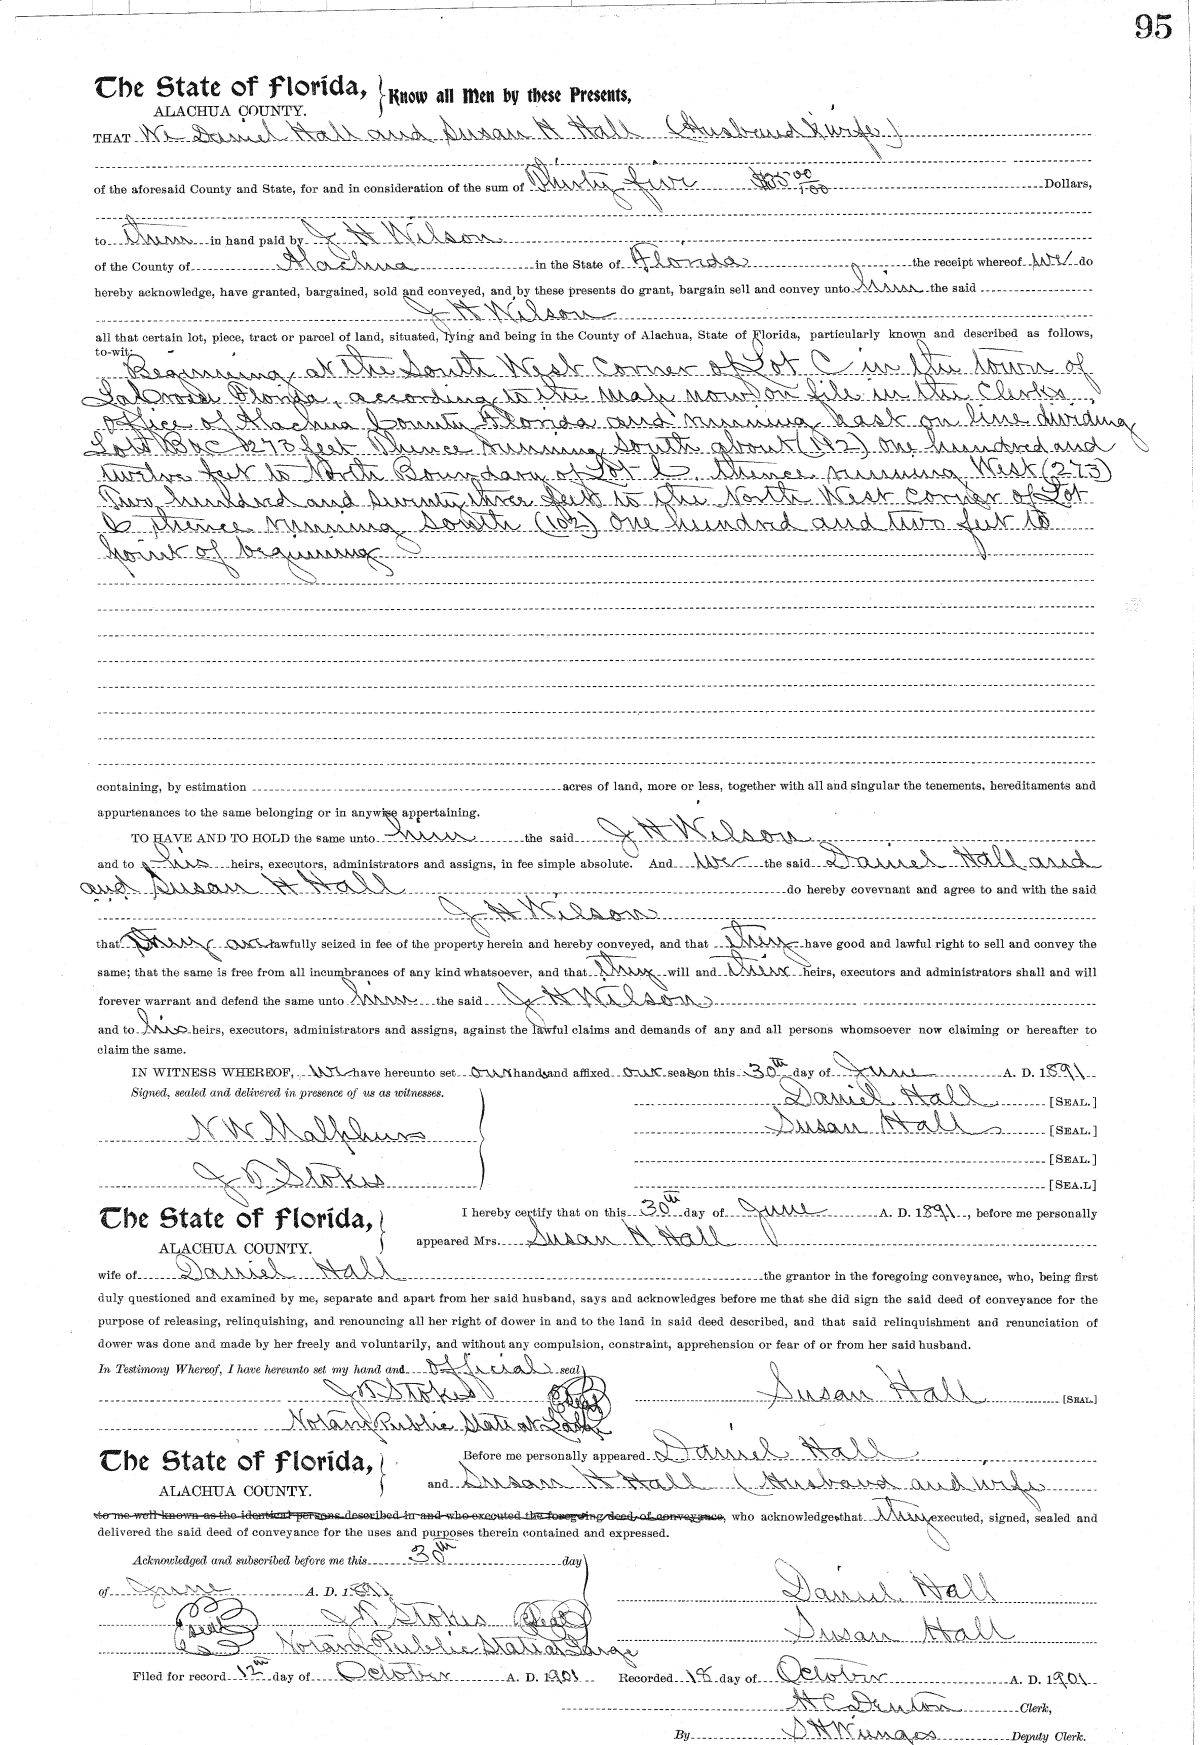 95
The State of Florida,
Know all Men by these Presents,
ALACHUA COUNTY.
THAT We Daniel Hall and Susan H Hall (Husband & wife)
of the aforesaid County and State, for and in consideration of the sum of Thirty five $35 00/100 Dollars,
to them in hand paid by J H Wilson
of the County of Alachua in the State of Florida the receipt whereof we do
hereby acknowledge, have granted, bargained, sold and conveyed, and by these presents do grant, bargain sell and convey unto him the said
J H Wilson
all that certain lot, piece, tract or parcel of land, situated, lying and being in the County of Alachua, State of Florida, particularly known and described as follows,
to-wit:
Beginning at the South West Corner of Lot C in the town of
LaCrosse Florida, according to the Map now on file in the Clerks
office of Alachua County Florida and running East on line dividing
Lots B & C 273 feet Thence running South about (112) One hundred and
twelve feet to North Boundary of Lot thence running West (273)
Two hundred and seventy three feet to the North West corner of Lot
thence running South (102) One hundred and two feet to
point of beginning
containing, by estimation acres of land, more or less, together with all and singular the tenements, hereditaments and
appurtenances to the same belonging or in anywise appertaining.
TO HAVE AND TO HOLD the same unto him the said J H Wilson
and to his heirs, executors, administrators and assigns, in fee simple absolute. And we the said Daniel Hall and
and Susan H Hall do hereby covevnant and agree to and with the said
J H Wilson
that they are lawfully seized in fee of the property herein and hereby conveyed, and that they have good and lawful right to sell and convey the
same; that the same is free from all incumbrances of any kind whatsoever, and that they will and their heirs, executors and administrators shall and will
forever warrant and defend the same unto him the said J H Wilson
and to his heirs, executors, administrators and assigns, against the lawful claims and demands of any and all persons whomsoever now claiming or hereafter to
claim the same.
IN WITNESS WHEREOF, We have hereunto set our hands and affixed our seals on this 30th day of June A. D. 1891
Signed, sealed and delivered in presence of us as witnesses.
Daniel Hall [SEAL.]
N W Malphurs
Susan Hall [SEAL.]
[SEAL.]
J D Stokes
[SEA.L]
The State of Florida,
I hereby certify that on this 30th day of June A. D. 1891, before me personally
ALACHUA COUNTY.
appeared Mrs. Susan H Hall
wife of Daniel Hall the grantor in the foregoing conveyance, who, being first
duly questioned and examined by me, separate and apart from her said husband, says and acknowledges before me that she did sign the said deed of conveyance for the
purpose of releasing, relinquishing, and renouncing all her right of dower in and to the land in said deed described, and that said relinquishment and renunciation of
dower was done and made by her freely and voluntarily, and without any compulsion, constraint, apprehension or fear of or from her said husband.
In Testimony Whereof, I have hereunto set my hand and official seal
J D Stokes (Seal) Susan Hall [SEAL]
Notary Public State at Large
The State of Florida,
Before me personally appeared Daniel Hall
ALACHUA COUNTY.
and Susan H Hall (Husband and wife
to me well known as the identical persons described in and who executed the foregoing deed of conveyance, who acknowledge that they executed, signed, sealed and
delivered the said deed of conveyance for the uses and purposes therein contained and expressed.
Acknowledged and subscribed before me this 30th day
of June A. D. 1891
Daniel Hall
Seal J D Stokes Seal
Susan Hall
Notary Public State at Large
Filed for record 12th day of October A. D. 1901 Recorded 18 day of October A. D. 1901
H C Denton Clerk,
By S H Wienges Deputy Clerk.